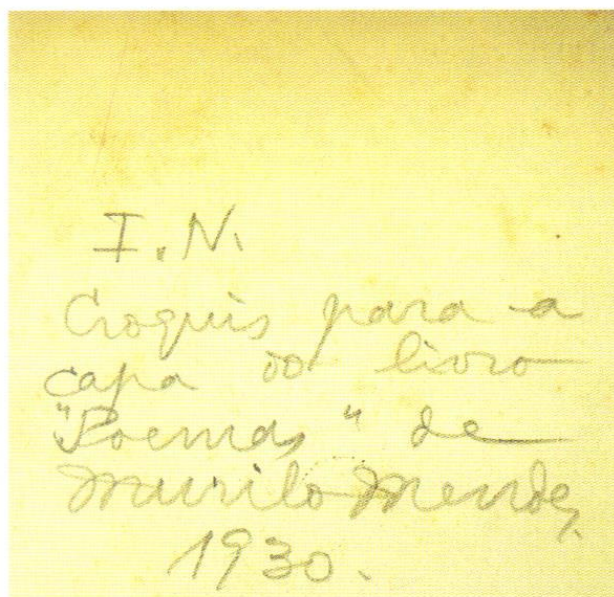 I.N.
Croquis para a
capa do livro
"Poemas" de
Murilo Mendes,
1930.